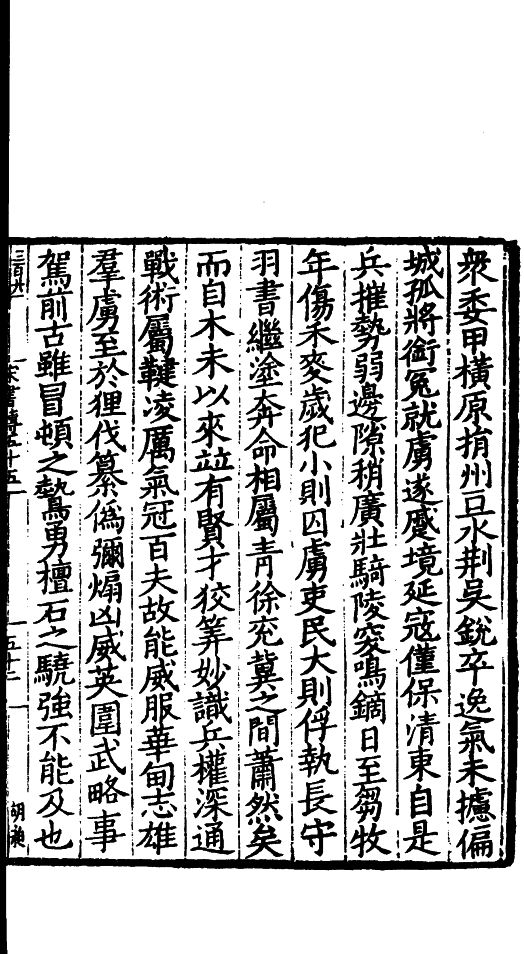 衆委甲橫原捐州亘水荆吳銳卒逸氣未攄偏
城孤將銜冤就虜遂蹙境延寇僅保清東自是
兵摧勢弱邊隙稍廣壯騎陵突鳴鏑日至芻牧
年傷禾麥歲犯小則囚虜吏民大則俘執長守
羽書繼塗奔命相屬青徐兖冀之間蕭然矣
而自木末以來並有賢才狡筭妙識兵權深通
戰術屬鞬凌厲氣冠百夫故能威服華甸志雄
羣虜至於狸伐纂僞彌煽凶威英圖武略事
駕前古雖冒頓之鷙勇檀石之驍強不能及也
三百六
宋書傳五十五
五十二
胡昶